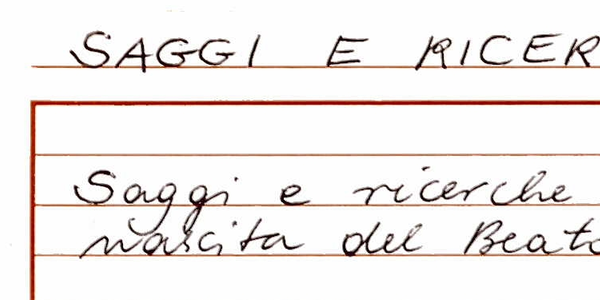 SAGGI E RICER
Saggi e ricerche
nascita del Beato